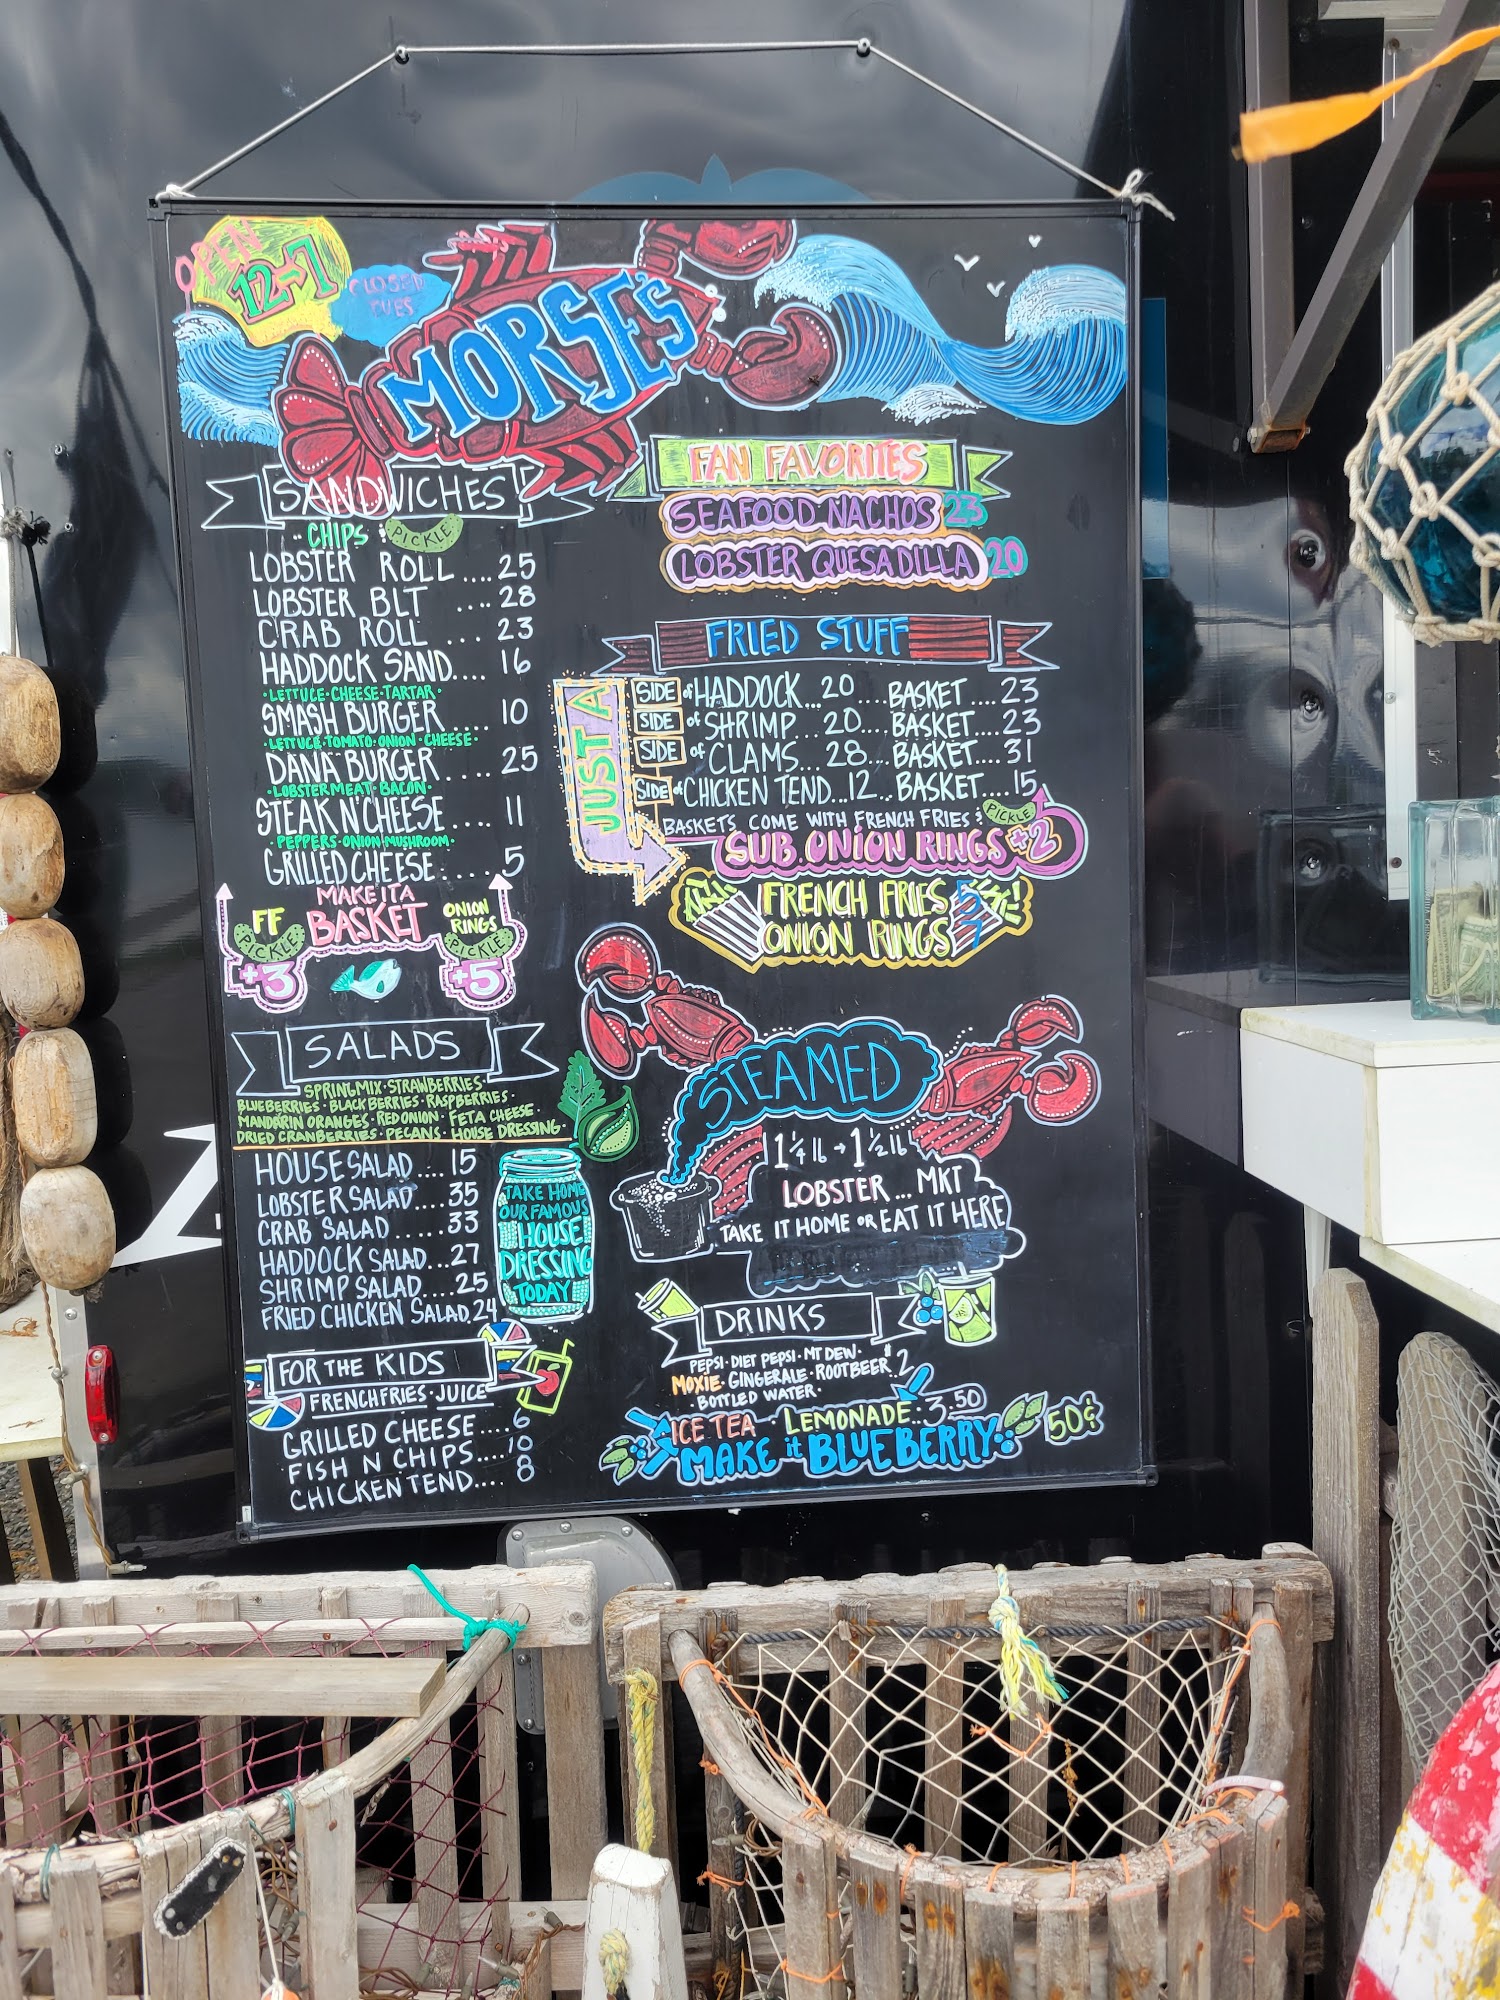 OPEN
12-7
CLOSED
TUES
MORSE'S
SANDWICHES
CHIPS & PICKLE
LOBSTER ROLL....25
LOBSTER BLT ....28
CRAB ROLL ....23
HADDOCK SAND....16
·LETTUCE·CHEESE·TARTAR·
SMASH BURGER....10
·LETTUCE·TOMATO·ONION·CHEESE·
DANA BURGER....25
·LOBSTER MEAT·BACON·
STEAK N' CHEESE....11
·PEPPERS·ONION·MUSHROOM·
GRILLED CHEESE.....5
MAKE IT A
BASKET
FF
PICKLE
+3
ONION
RINGS
PICKLE
+5
SALADS
SPRING MIX·STRAWBERRIES·
BLUEBERRIES·BLACKBERRIES·RASPBERRIES·
MANDARIN ORANGES·RED ONION·FETA CHEESE·
DRIED CRANBERRIES·PECANS·HOUSE DRESSING·
HOUSE SALAD....15
LOBSTER SALAD....35
CRAB SALAD.....33
HADDOCK SALAD...27
SHRIMP SALAD....25
FRIED CHICKEN SALAD.24
TAKE HOME
OUR FAMOUS
HOUSE
DRESSING
TODAY
FOR THE KIDS
FRENCH FRIES·JUICE
GRILLED CHEESE....6
FISH N CHIPS....10
CHICKEN TEND....8
FAN FAVORITES
SEAFOOD NACHOS 23
LOBSTER QUESADILLA 20
FRIED STUFF
JUST A
SIDE of HADDOCK...20....BASKET....23
SIDE of SHRIMP...20....BASKET....23
SIDE of CLAMS...28...BASKET....31
SIDE of CHICKEN TEND...12..BASKET....15
BASKETS COME WITH FRENCH FRIES & PICKLE
SUB ONION RINGS +2
FRENCH FRIES 5
ONION RINGS 7
STEAMED
1 1/4 lb → 1 1/2 lb
LOBSTER...MKT
TAKE IT HOME OR EAT IT HERE
DRINKS
PEPSI·DIET PEPSI·MT DEW·
MOXIE·GINGERALE·ROOTBEER $2
·BOTTLED WATER·
ICE TEA·LEMONADE..3.50
MAKE it BLUEBERRY 50¢